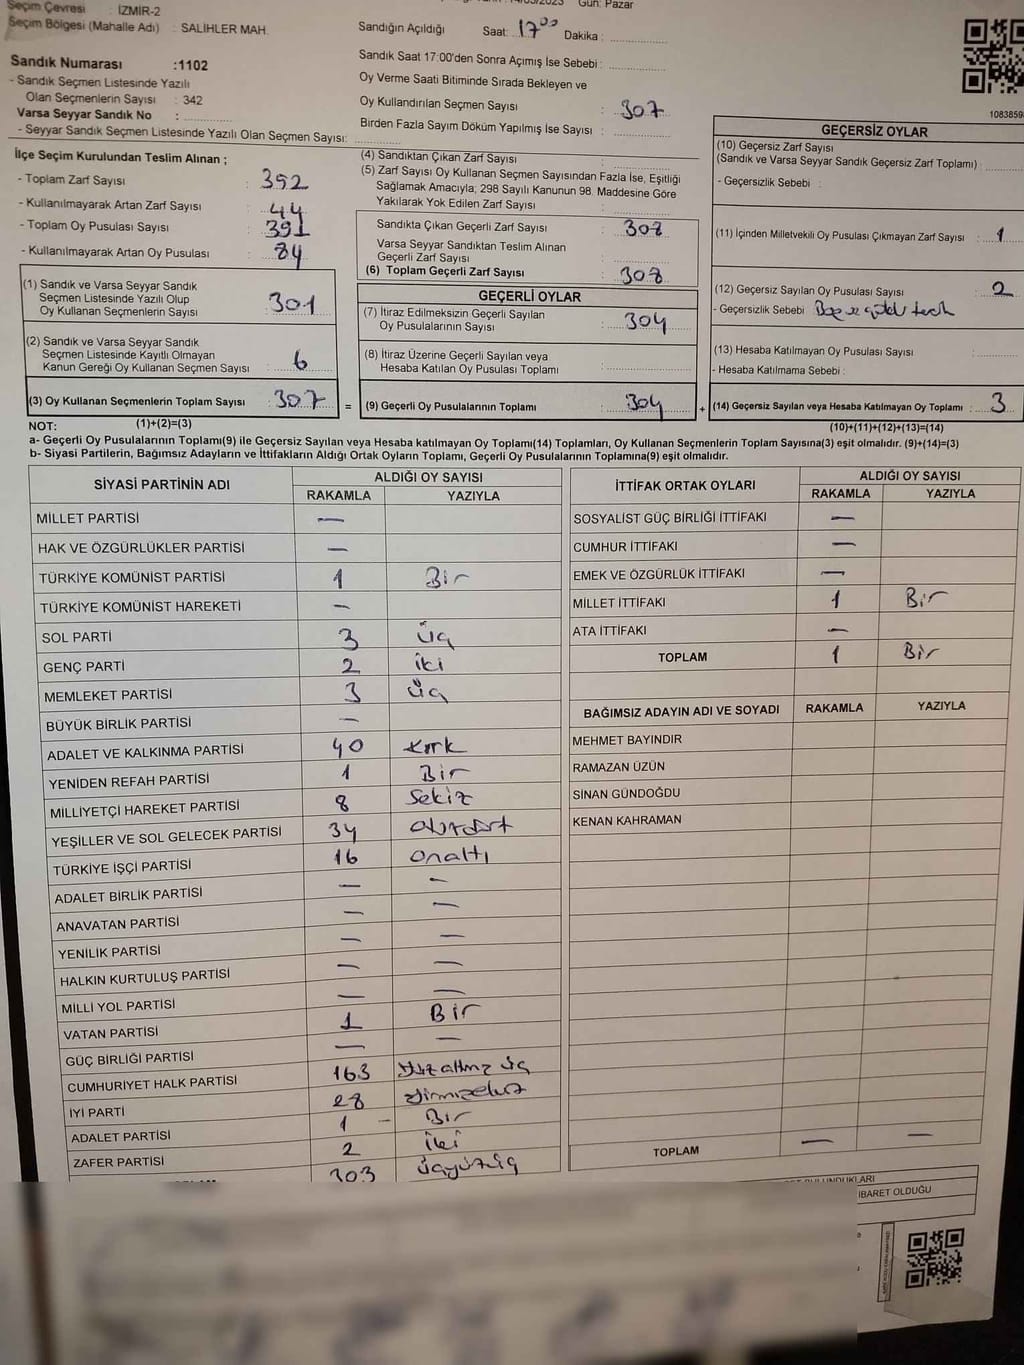 Seçim Çevresi : İZMİR-2
Seçim Bölgesi (Mahalle Adı) : SALİHLER MAH.
Gün: Pazar
Sandığın Açıldığı Saat: 17⁰⁰ Dakika :
Sandık Saat 17:00'den Sonra Açımış İse Sebebi :
Oy Verme Saati Bitiminde Sırada Bekleyen ve
Oy Kullandırılan Seçmen Sayısı : 307
Birden Fazla Sayım Döküm Yapılmış İse Sayısı :
Sandık Numarası :1102
- Sandık Seçmen Listesinde Yazılı
Olan Seçmenlerin Sayısı : 342
Varsa Seyyar Sandık No :
- Seyyar Sandık Seçmen Listesinde Yazılı Olan Seçmen Sayısı:
İlçe Seçim Kurulundan Teslim Alınan ;
- Toplam Zarf Sayısı : 392
- Kullanılmayarak Artan Zarf Sayısı : 44
- Toplam Oy Pusulası Sayısı : 391
- Kullanılmayarak Artan Oy Pusulası : 84
(1) Sandık ve Varsa Seyyar Sandık
Seçmen Listesinde Yazılı Olup
Oy Kullanan Seçmenlerin Sayısı : 301
(2) Sandık ve Varsa Seyyar Sandık
Seçmen Listesinde Kayıtlı Olmayan
Kanun Gereği Oy Kullanan Seçmen Sayısı : 6
(3) Oy Kullanan Seçmenlerin Toplam Sayısı : 307
(4) Sandıktan Çıkan Zarf Sayısı :
(5) Zarf Sayısı Oy Kullanan Seçmen Sayısından Fazla İse, Eşitliği
Sağlamak Amacıyla; 298 Sayılı Kanunun 98. Maddesine Göre
Yakılarak Yok Edilen Zarf Sayısı :
Sandıkta Çıkan Geçerli Zarf Sayısı : 308
Varsa Seyyar Sandıktan Teslim Alınan
Geçerli Zarf Sayısı :
(6) Toplam Geçerli Zarf Sayısı : 308
GEÇERLİ OYLAR
(7) İtiraz Edilmeksizin Geçerli Sayılan
Oy Pusulalarının Sayısı : 304
(8) İtiraz Üzerine Geçerli Sayılan veya
Hesaba Katılan Oy Pusulası Toplamı :
= (9) Geçerli Oy Pusulalarının Toplamı : 304
1083859
GEÇERSİZ OYLAR
(10) Geçersiz Zarf Sayısı
(Sandık ve Varsa Seyyar Sandık Geçersiz Zarf Toplamı) :
- Geçersizlik Sebebi :
(11) İçinden Milletvekili Oy Pusulası Çıkmayan Zarf Sayısı : 1
(12) Geçersiz Sayılan Oy Pusulası Sayısı : 2
- Geçersizlik Sebebi
(13) Hesaba Katılmayan Oy Pusulası Sayısı :
- Hesaba Katılmama Sebebi :
+ (14) Geçersiz Sayılan veya Hesaba Katılmayan Oy Toplamı : 3
NOT: (1)+(2)=(3) (10)+(11)+(12)+(13)=(14)
a- Geçerli Oy Pusulalarının Toplamı(9) ile Geçersiz Sayılan veya Hesaba katılmayan Oy Toplamı(14) Toplamları, Oy Kullanan Seçmenlerin Toplam Sayısına(3) eşit olmalıdır. (9)+(14)=(3)
b- Siyasi Partilerin, Bağımsız Adayların ve İttifakların Aldığı Ortak Oyların Toplamı, Geçerli Oy Pusulalarının Toplamına(9) eşit olmalıdır.
SİYASİ PARTİNİN ADI ALDIĞI OY SAYISI
RAKAMLA YAZIYLA
MİLLET PARTİSİ —
HAK VE ÖZGÜRLÜKLER PARTİSİ —
TÜRKİYE KOMÜNİST PARTİSİ 1 Bir
TÜRKİYE KOMÜNİST HAREKETİ —
SOL PARTİ 3 üç
GENÇ PARTİ 2 iki
MEMLEKET PARTİSİ 3 üç
BÜYÜK BİRLİK PARTİSİ —
ADALET VE KALKINMA PARTİSİ 40 kırk
YENİDEN REFAH PARTİSİ 1 Bir
MİLLİYETÇİ HAREKET PARTİSİ 8 Sekiz
YEŞİLLER VE SOL GELECEK PARTİSİ 34 otuzdört
TÜRKİYE İŞÇİ PARTİSİ 16 onaltı
ADALET BİRLİK PARTİSİ — —
ANAVATAN PARTİSİ — —
YENİLİK PARTİSİ — —
HALKIN KURTULUŞ PARTİSİ — —
MİLLİ YOL PARTİSİ — —
VATAN PARTİSİ 1 Bir
GÜÇ BİRLİĞİ PARTİSİ — —
CUMHURİYET HALK PARTİSİ 163 Yüzaltmış üç
İYİ PARTİ 28 Yirmisekiz
ADALET PARTİSİ 1 Bir
ZAFER PARTİSİ 2 iki
303 üçyüzüç
İTTİFAK ORTAK OYLARI ALDIĞI OY SAYISI
RAKAMLA YAZIYLA
SOSYALİST GÜÇ BİRLİĞİ İTTİFAKI —
CUMHUR İTTİFAKI —
EMEK VE ÖZGÜRLÜK İTTİFAKI —
MİLLET İTTİFAKI 1 Bir
ATA İTTİFAKI —
TOPLAM 1 Bir
BAĞIMSIZ ADAYIN ADI VE SOYADI RAKAMLA YAZIYLA
MEHMET BAYINDIR
RAMAZAN ÜZÜN
SİNAN GÜNDOĞDU
KENAN KAHRAMAN
TOPLAM — —
İBARET OLDUĞU